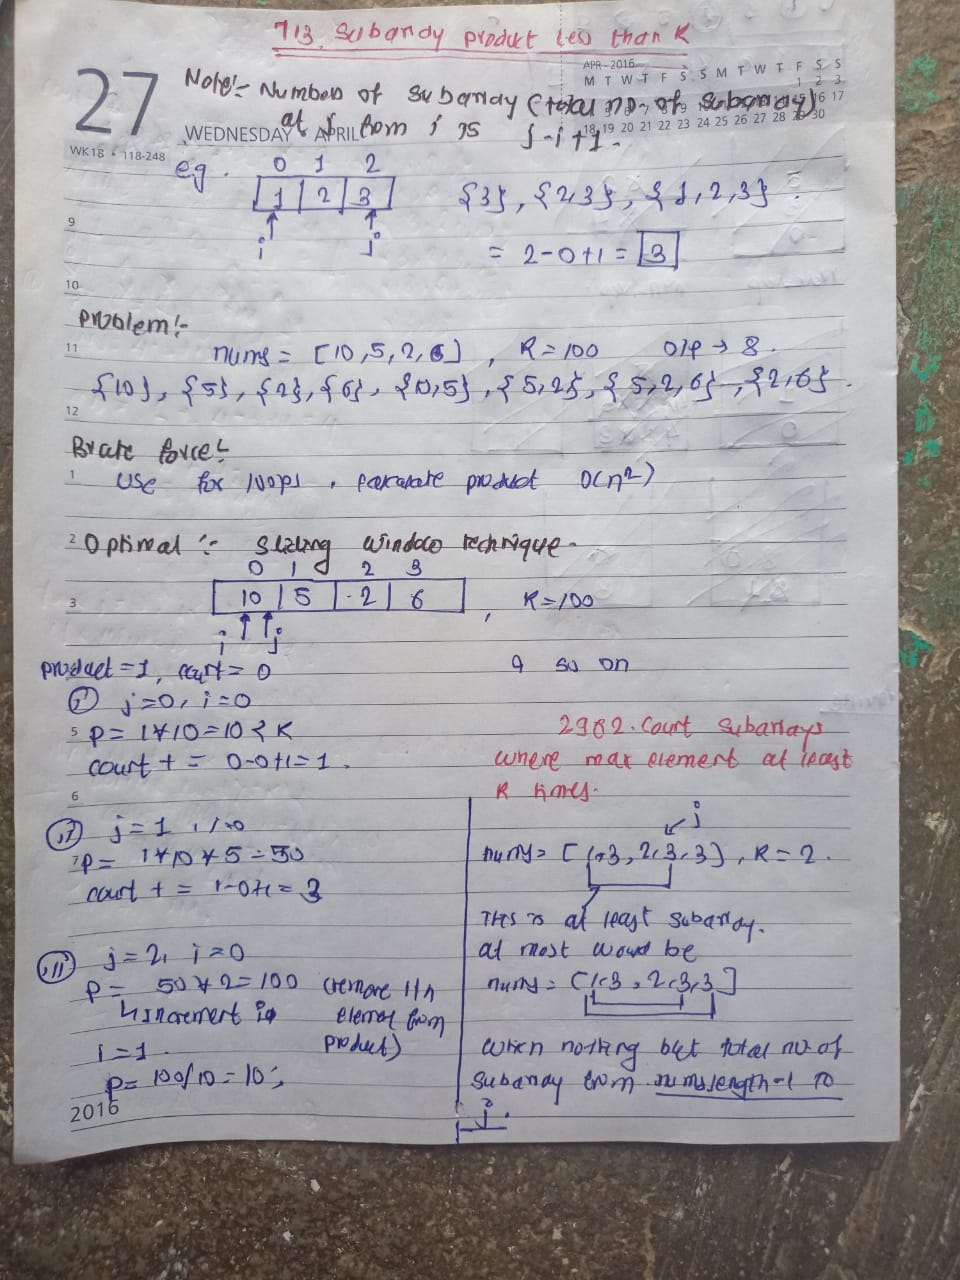 713. Subarray product less than K
27
APR-2016
M T W T F S S M T W T F S S
1 2 3
18 19 20 21 22 23 24 25 26 27 28 29 30
16 17
Note:- Number of Subarray (total no. of subarray)
at j from i is j-i+1.
WEDNESDAY APRIL
WK18 118-248
eg. 0 1 2
1 2 3 {3}, {2,3}, {1,2,3}
i j
= 2-0+1 = 3
9
10
Problem:-
11
nums = [10,5,2,6], K=100 O/P → 8.
{10}, {5}, {2}, {6}, {10,5}, {5,2}, {5,2,6}, {2,6}.
12
Brute force:
1
Use for loops, product O(n²)
2
Optimal :- Sliding window technique.
0 1 2 3
3
10 5 2 6, K=100
i j
product = 1, count = 0
& so on
(i) j=0, i=0
5
P= 1*10=10 < K
count += 0-0+1=1.
6
(ii) j=1, i=0
7
P= 1*10*5=50
count += 1-0+1= 3
(iii) j=2, i=0
P= 50*2=100 (remove ith
element from
product)
↳ increment i
i=1
P= 100/10=10;
2016
2962. Count Subarrays
where max element at least
K times.
j
nums= [1,3,2,3,3], K=2.
This is at least subarray.
at most would be
nums= [1,3,2,3,3]
when nothing but total no. of
subarray from nums.length-1 to
j.